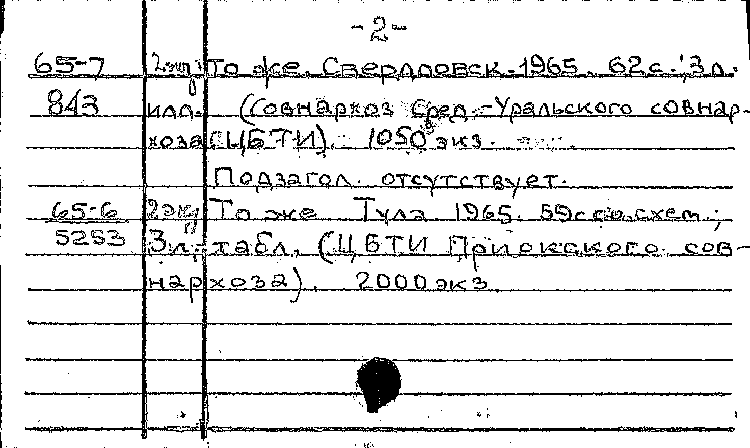 -2-
65-7 2экз То же. Свердловск. 1965. 62с.; 3л.
843 илл. (Совнархоз Сред.-Уральского совнар-
хоза ЦБТИ). 1050 экз.
Подзагол. отсутствует.
65-6 2экз То же Тула 1965. 59с со схем.;
5253 3л. табл. (ЦБТИ Приокского сов-
нархоза). 2000 экз.